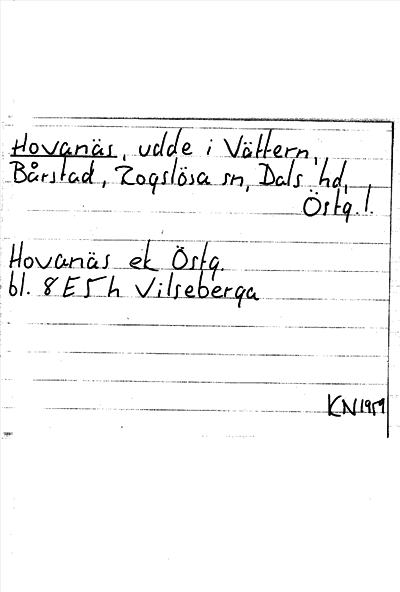 Hovanäs, udde i Vättern,
Bårstad, Rogslösa sn, Dals hd,
Östg. l.
Hovanäs ek Östg.
bl. 8E5h Vilseberga
KN 1959